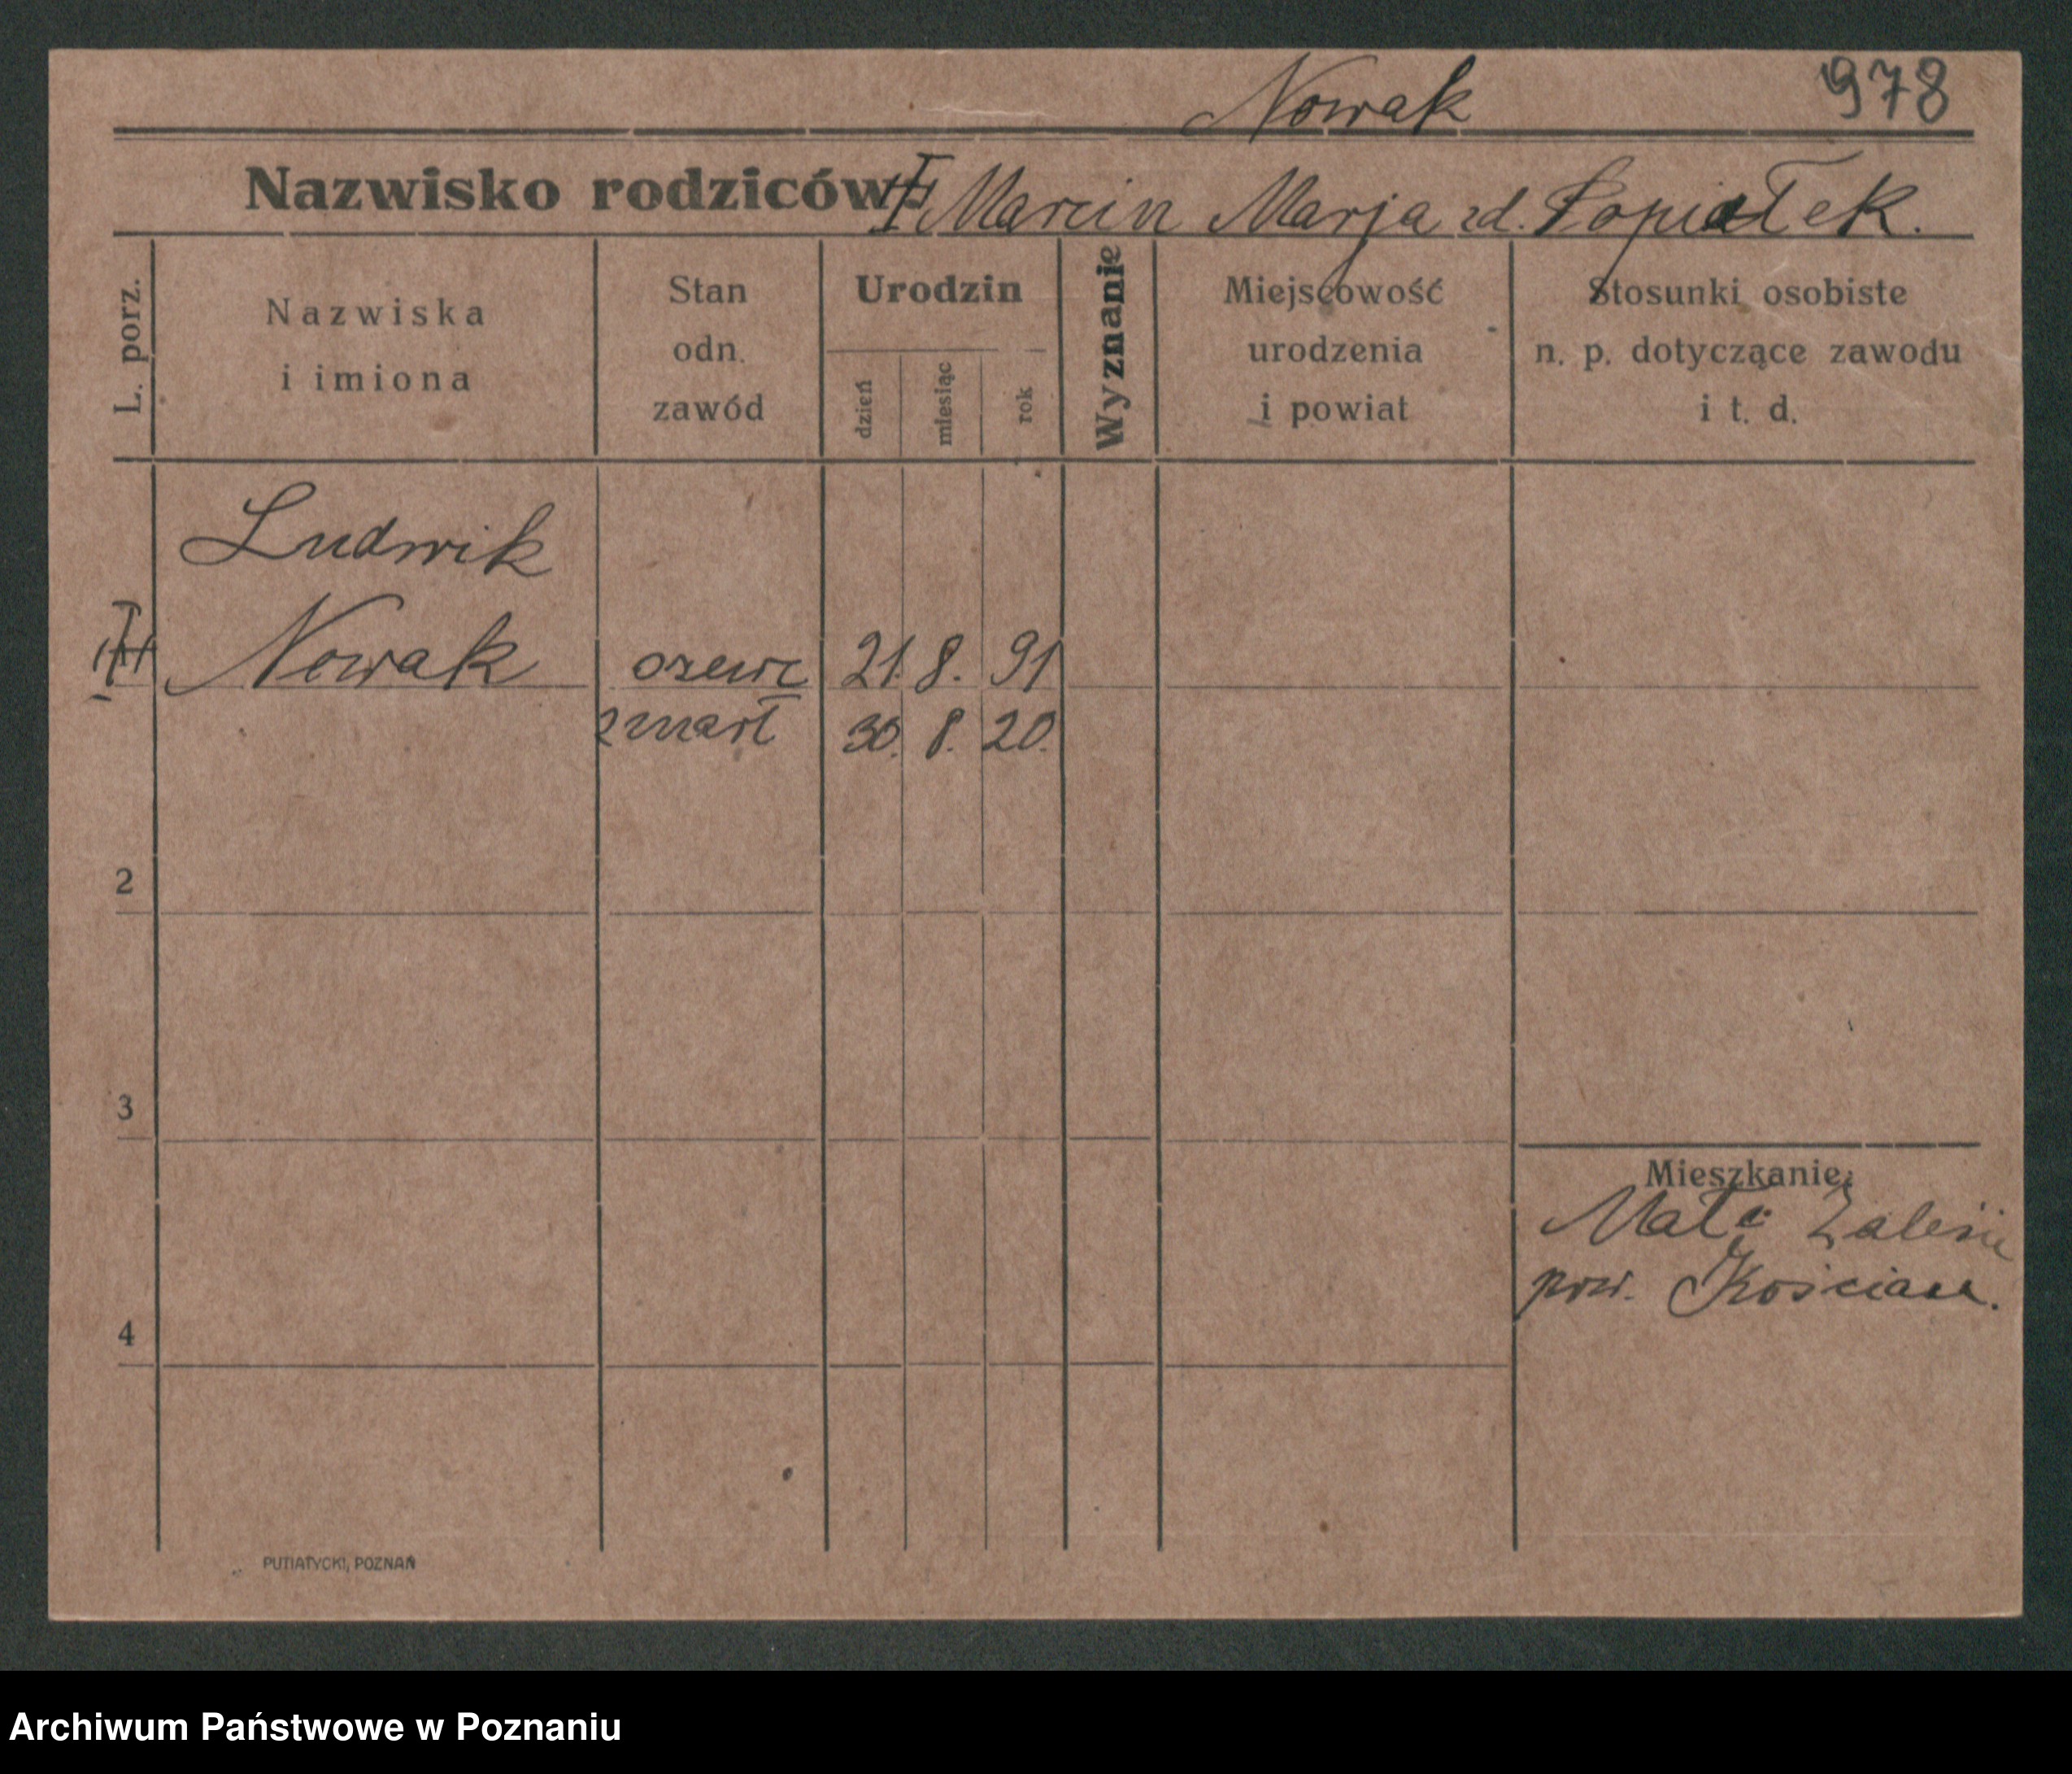 Nowak 978
Nazwisko rodziców: Marcin Marja zd. Łopiałek.
L. porz.
Nazwiska
i imiona
Stan
odn.
zawód
Urodzin
dzień
miesiąc
rok
Wyznanie
Miejscowość
urodzenia
i powiat
Stosunki osobiste
n. p. dotyczące zawodu
i t. d.
Ludwik
Nowak szewc 21. 8. 91
zmarł 30. 8. 20.
2
3
Mieszkanie:
Małe Zalesie
pow. Kościan.
4
PUTIATYCKI, POZNAŃ
Archiwum Państwowe w Poznaniu